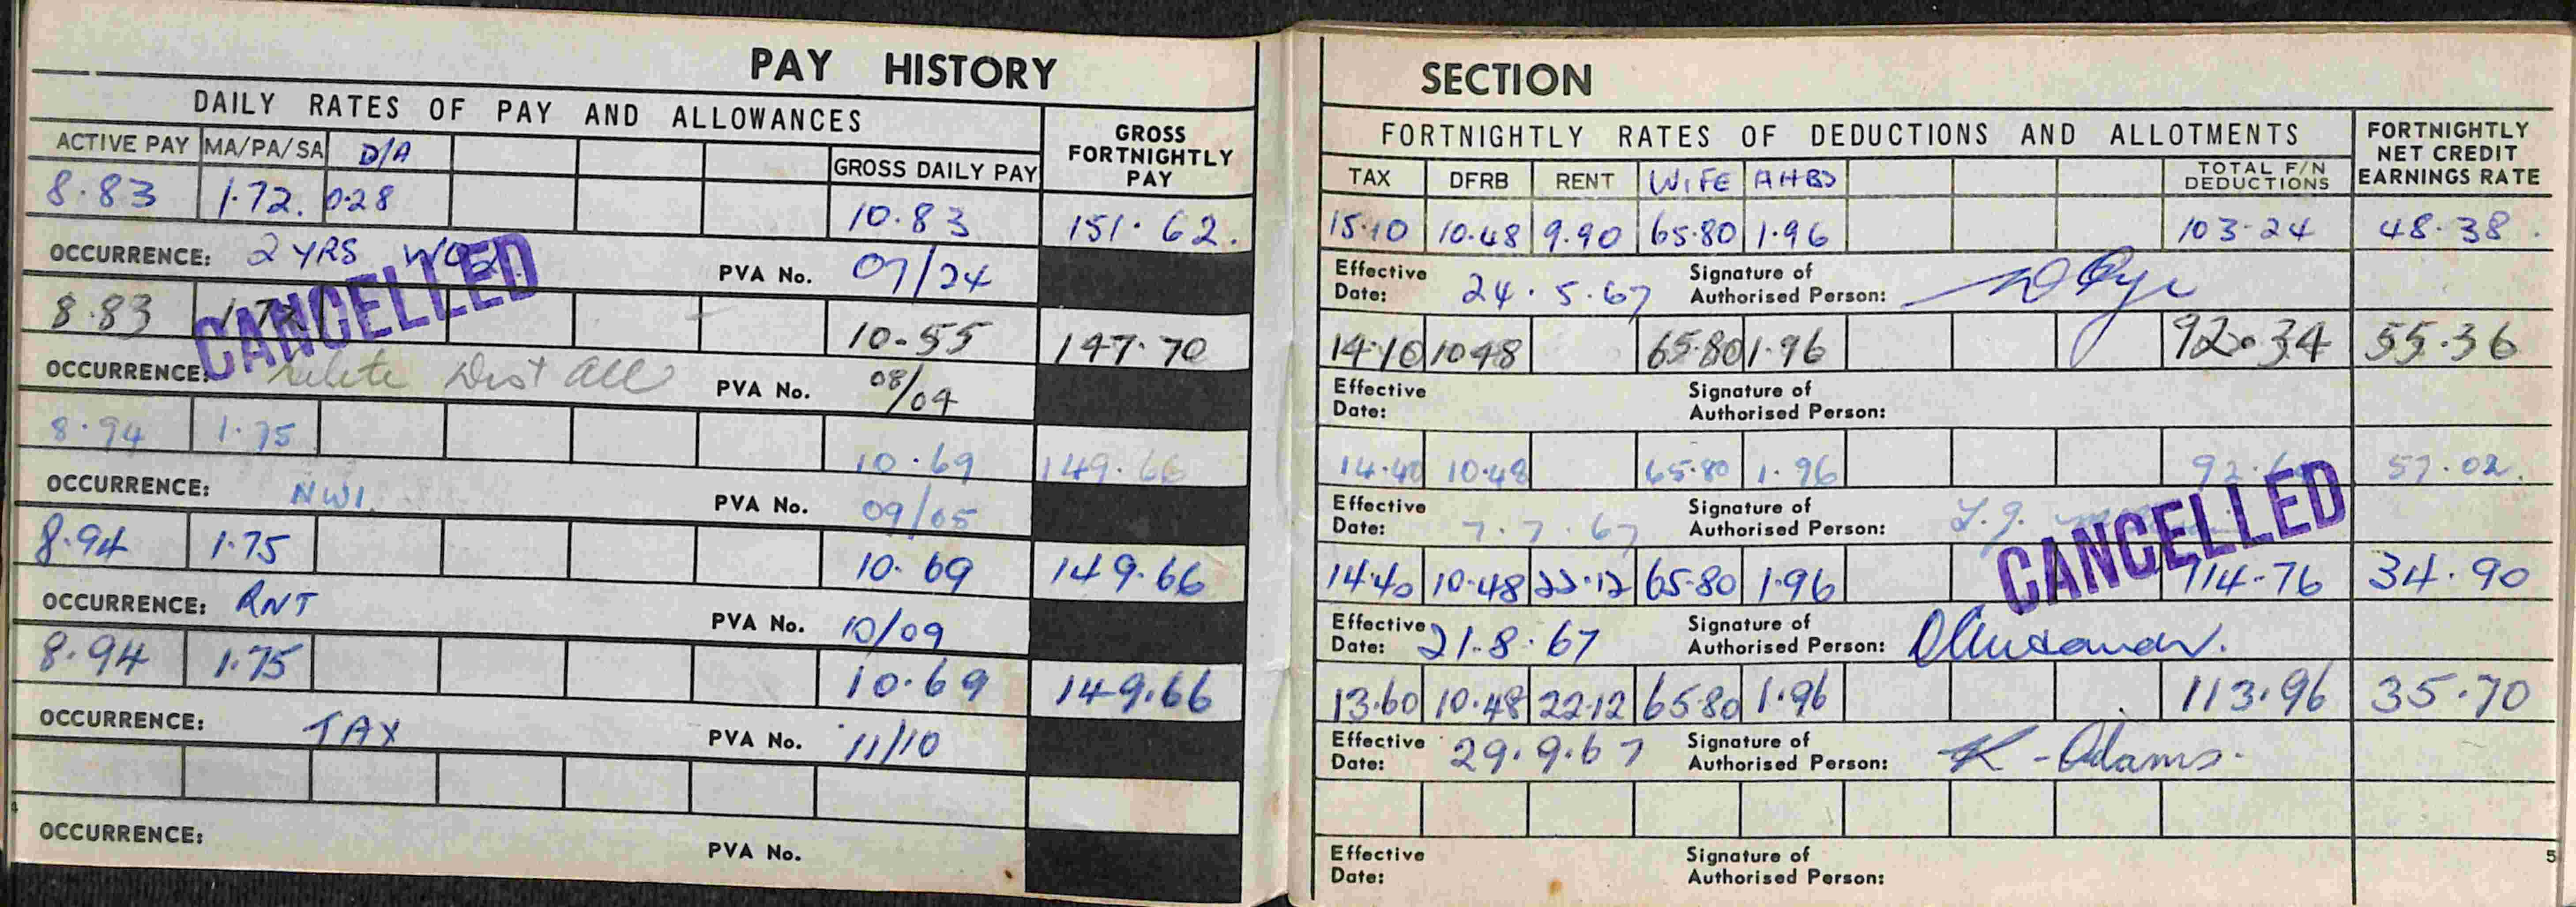 PAY HISTORY SECTION
DAILY RATES OF PAY AND ALLOWANCES
ACTIVE PAY MA/PA/SA D/A GROSS DAILY PAY GROSS FORTNIGHTLY PAY
8.83 1.72. 0.28 10.83 151.62.
OCCURRENCE: 2 YRS PVA No. 07/24
8.83 1.72 10.55 147.70
OCCURRENCE: delete Dist All PVA No. 08/04
CANCELLED
8.94 1.75 10.69 149.66
OCCURRENCE: NWI. PVA No. 09/05
8.94 1.75 10.69 149.66
OCCURRENCE: RNT PVA No. 10/09
8.94 1.75 10.69 149.66
OCCURRENCE: TAX PVA No. 11/10
OCCURRENCE: PVA No.
FORTNIGHTLY RATES OF DEDUCTIONS AND ALLOTMENTS
TAX DFRB RENT WIFE AHBS TOTAL F/N DEDUCTIONS FORTNIGHTLY NET CREDIT EARNINGS RATE
15.10 10.48 9.90 65.80 1.96 103.24 48.38.
Effective Date: 24.5.67 Signature of Authorised Person:
14.10 10.48 65.80 1.96 92.34 55.36
Effective Date: Signature of Authorised Person:
14.40 10.48 65.80 1.96 57.02.
Effective Date: 7.7.67 Signature of Authorised Person:
CANCELLED
14.40 10.48 22.12 65.80 1.96 114.76 34.90
Effective Date: 21.8.67 Signature of Authorised Person:
13.60 10.48 22.12 65.80 1.96 113.96 35.70
Effective Date: 29.9.67 Signature of Authorised Person: K - Adams.
Effective Date: Signature of Authorised Person:
5